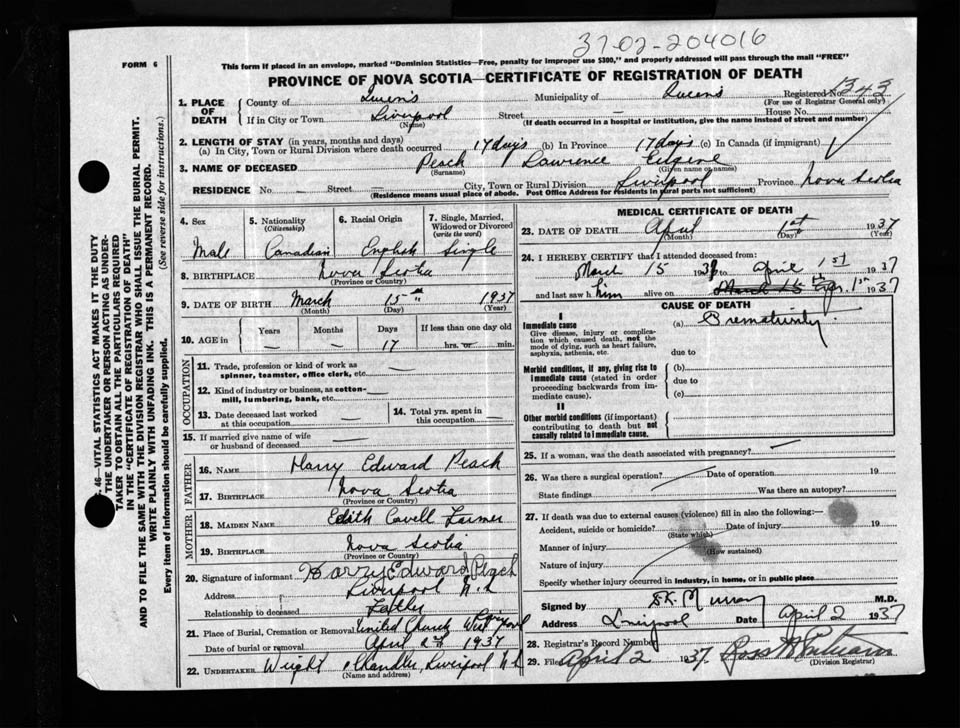 37-02-204016
FORM 6
This form if placed in an envelope, marked "Dominion Statistics—Free, penalty for improper use $300," and properly addressed will pass through the mail "FREE"
PROVINCE OF NOVA SCOTIA—CERTIFICATE OF REGISTRATION OF DEATH
1. PLACE OF DEATH
County of Queens Municipality of Queens Registered No. 343
(For use of Registrar General only)
If in City or Town Liverpool Street House No.
(Name) (If death occurred in a hospital or institution, give the name instead of street and number)
2. LENGTH OF STAY (in years, months and days)
(a) In City, Town or Rural Division where death occurred 17 days (b) In Province 17 days (c) In Canada (if immigrant)
3. NAME OF DECEASED Peach Lawrence Eugene
(Surname) (Given name or names)
RESIDENCE No. — Street — City, Town or Rural Division Liverpool Province Nova Scotia
(Residence means usual place of abode. Post Office Address for residents in rural parts not sufficient)
4. Sex Male
5. Nationality (Citizenship) Canadian
6. Racial Origin English
7. Single, Married, Widowed or Divorced (write the word) Single
8. BIRTHPLACE Nova Scotia
(Province or Country)
9. DATE OF BIRTH March 15th 1937
(Month) (Day) (Year)
10. AGE in Years — Months — Days 17 If less than one day old hrs. or min.
OCCUPATION
11. Trade, profession or kind of work as spinner, teamster, office clerk, etc. —
12. Kind of industry or business, as cotton-mill, lumbering, bank, etc. —
13. Date deceased last worked at this occupation —
14. Total yrs. spent in this occupation —
15. If married give name of wife or husband of deceased —
FATHER
16. NAME Harry Edward Peach
17. BIRTHPLACE Nova Scotia
(Province or Country)
MOTHER
18. MAIDEN NAME Edith Cavell Farmer
19. BIRTHPLACE Nova Scotia
(Province or Country)
20. Signature of informant Harry Edward Peach
Address Liverpool N.S
Relationship to deceased Father
21. Place of Burial, Cremation or Removal United Church West Liverpool
Date of burial or removal April 2nd 1937
22. UNDERTAKER Wright & Chandler Liverpool N S
(Name and address)
MEDICAL CERTIFICATE OF DEATH
23. DATE OF DEATH April 1st 1937
(Month) (Day) (Year)
24. I HEREBY CERTIFY that I attended deceased from:
March 15 1937 to April 1st 1937
and last saw him alive on March 15th Apr. 1st 1937
CAUSE OF DEATH
I
Immediate cause
Give disease, injury or complication which caused death, not the mode of dying, such as heart failure, asphyxia, asthenia, etc.
(a) Prematurity.
due to
Morbid conditions, if any, giving rise to immediate cause (stated in order proceeding backwards from immediate cause).
(b)
due to
(c)
II
Other morbid conditions (if important) contributing to death but not causally related to immediate cause.
25. If a woman, was the death associated with pregnancy? —
26. Was there a surgical operation? Date of operation 19
State findings Was there an autopsy?
27. If death was due to external causes (violence) fill in also the following:—
Accident, suicide or homicide? Date of injury 19
(State which)
Manner of injury
(How sustained)
Nature of injury
Specify whether injury occurred in industry, in home, or in public place
Signed by Murray M.D.
Address Liverpool Date April 2 1937
28. Registrar's Record Number
29. Filed April 2 1937.
(Division Registrar)
46—VITAL STATISTICS ACT MAKES IT THE DUTY
THE UNDERTAKER OR PERSON ACTING AS UNDER-
TAKER TO OBTAIN ALL THE PARTICULARS REQUIRED
IN THE "CERTIFICATE OF REGISTRATION OF DEATH"
AND TO FILE THE SAME WITH THE DIVISION REGISTRAR WHO SHALL ISSUE THE BURIAL PERMIT.
WRITE PLAINLY WITH UNFADING INK. THIS IS A PERMANENT RECORD.
Every item of information should be carefully supplied. (See reverse side for instructions.)